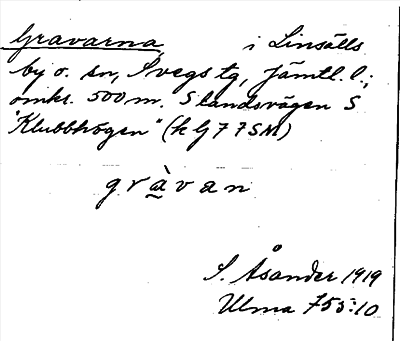 Gravarna, i Linsälls
by o. sn, Svegs tg, Jämtl. l.;
omkr. 500 m. S landsvägen S
"Klubbhögen" (k lj 77 SM)
gràvan
S. Åsander 1919
Ulma 755:10